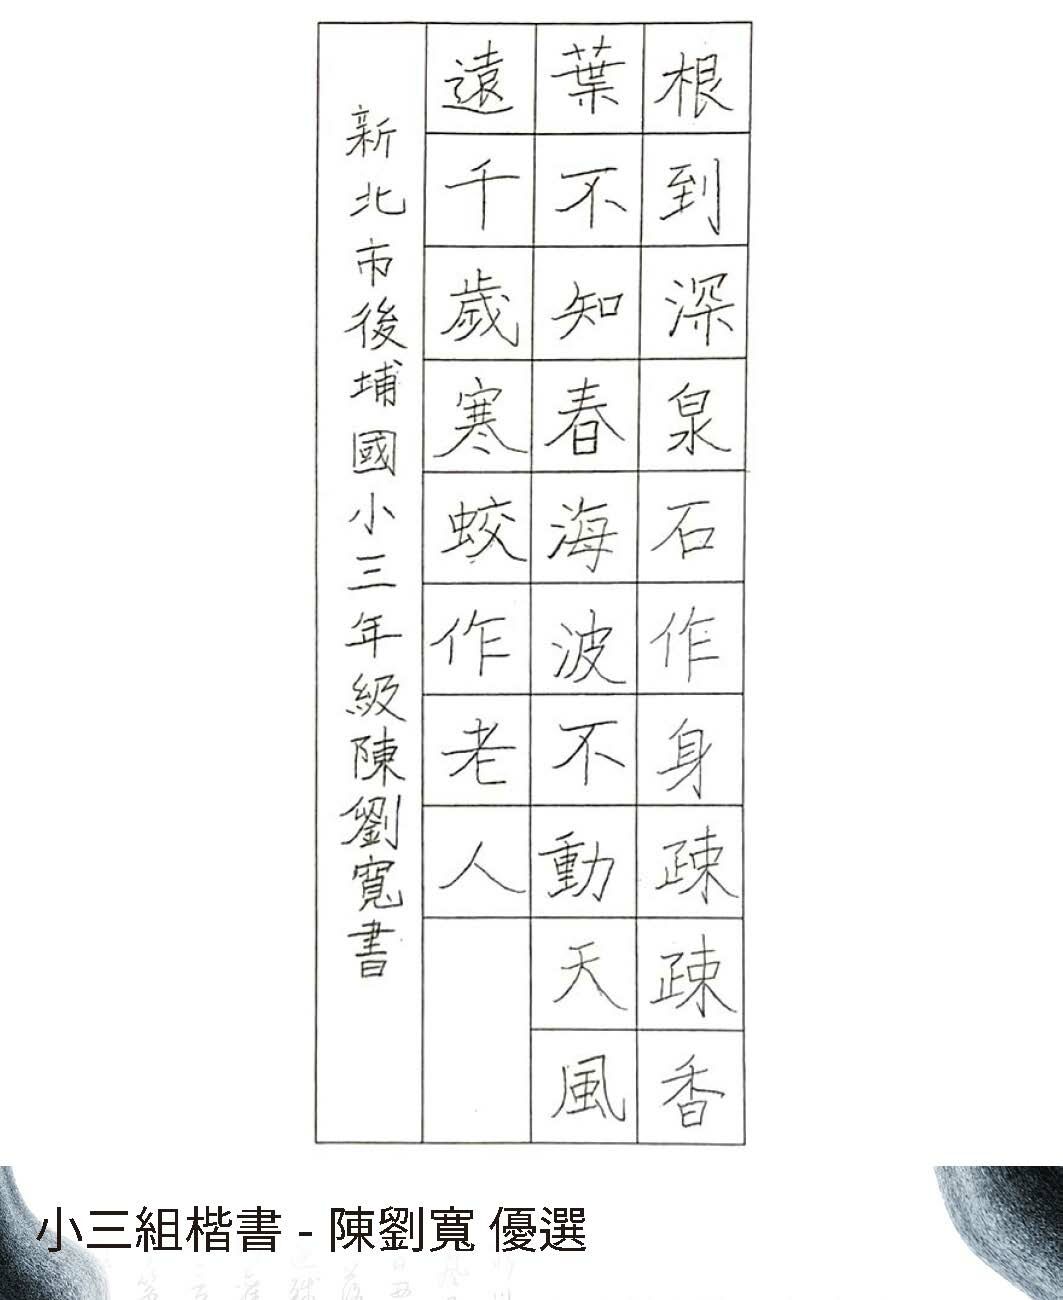 根到深泉石作身疎疎香
葉不知春海波不動天風
遠千歲寒蛟作老人
新北市後埔國小三年級陳劉寬書
小三組楷書 - 陳劉寬 優選